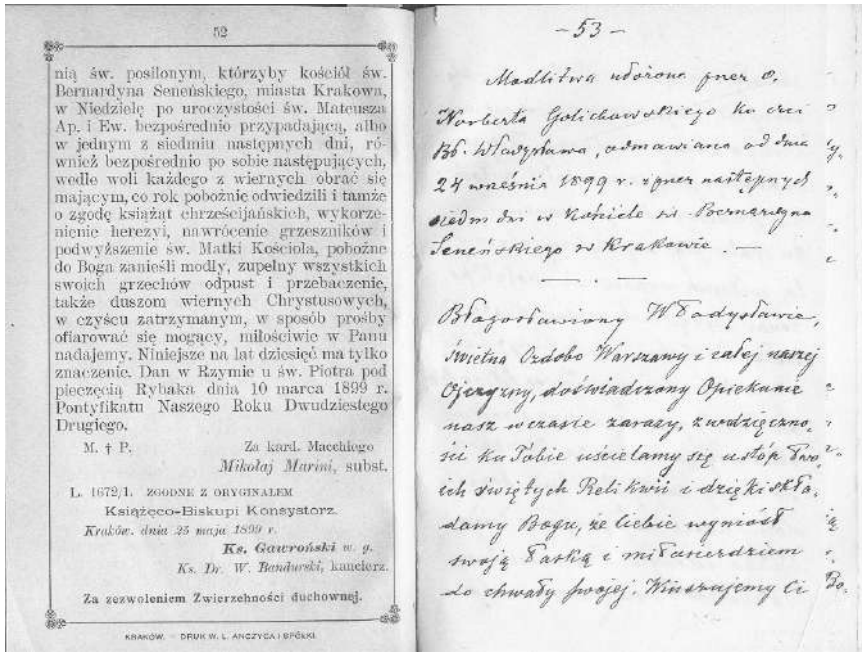 52
nią św. posilonym, którzyby kościół św.
Bernardyna Seneńskiego, miasta Krakowa,
w Niedzielę po uroczystości św. Mateusza
Ap. i Ew. bezpośrednio przypadającą, albo
w jednym z siedmiu następnych dni, ró-
wnież bezpośrednio po sobie następujących,
wedle woli każdego z wiernych obrać się
mającym, co rok pobożnie odwiedzili i tamże
o zgodę książąt chrześcijańskich, wykorze-
nienie herezyi, nawrócenie grzeszników i
podwyższenie św. Matki Kościoła, pobożne
do Boga zanieśli modły, zupełny wszystkich
swoich grzechów odpust i przebaczenie,
także duszom wiernych Chrystusowych,
w czyścu zatrzymanym, w sposób prośby
ofiarować się mogący, miłościwie w Panu
nadajemy. Niniejsze na lat dziesięć ma tylko
znaczenie. Dan w Rzymie u św. Piotra pod
pieczęcią Rybaka dnia 10 marca 1899 r.
Pontyfikatu Naszego Roku Dwudziestego
Drugiego.
M. † P. Za kard. Macchiego
Mikołaj Marini, subst.
L. 1672/1. ZGODNE Z ORYGINAŁEM
Książęco-Biskupi Konsystorz.
Kraków. dnia 25 maja 1899 r.
Ks. Gawroński w. g.
Ks. Dr. W. Bandurski, kanclerz.
Za zezwoleniem Zwierzchności duchownej.
KRAKÓW. — DRUK W. L. ANCZYCA I SPÓŁKI.
- 53 -
Modlitwa ułożona przez O.
Norberta Golichowskiego ku czci
Bł. Władysława, odmawiana od dnia
24 września 1899 r. i przez następnych
siedm dni w Kościele św. Bernardyna
Seneńskiego w Krakowie. —
Błogosławiony Władysławie,
świetna Ozdobo Warszawy i całej naszej
Ojczyzny, doświadczony Opiekunie
nasz w czasie zarazy, z wdzięczno-
ści ku Tobie uścielamy się u stóp Two-
ich świętych Relikwii i dzięki skła-
damy Bogu, że Ciebie wyniósł
swoją łaską i miłosierdziem
do chwały swojej. Winszujemy Ci Bo-